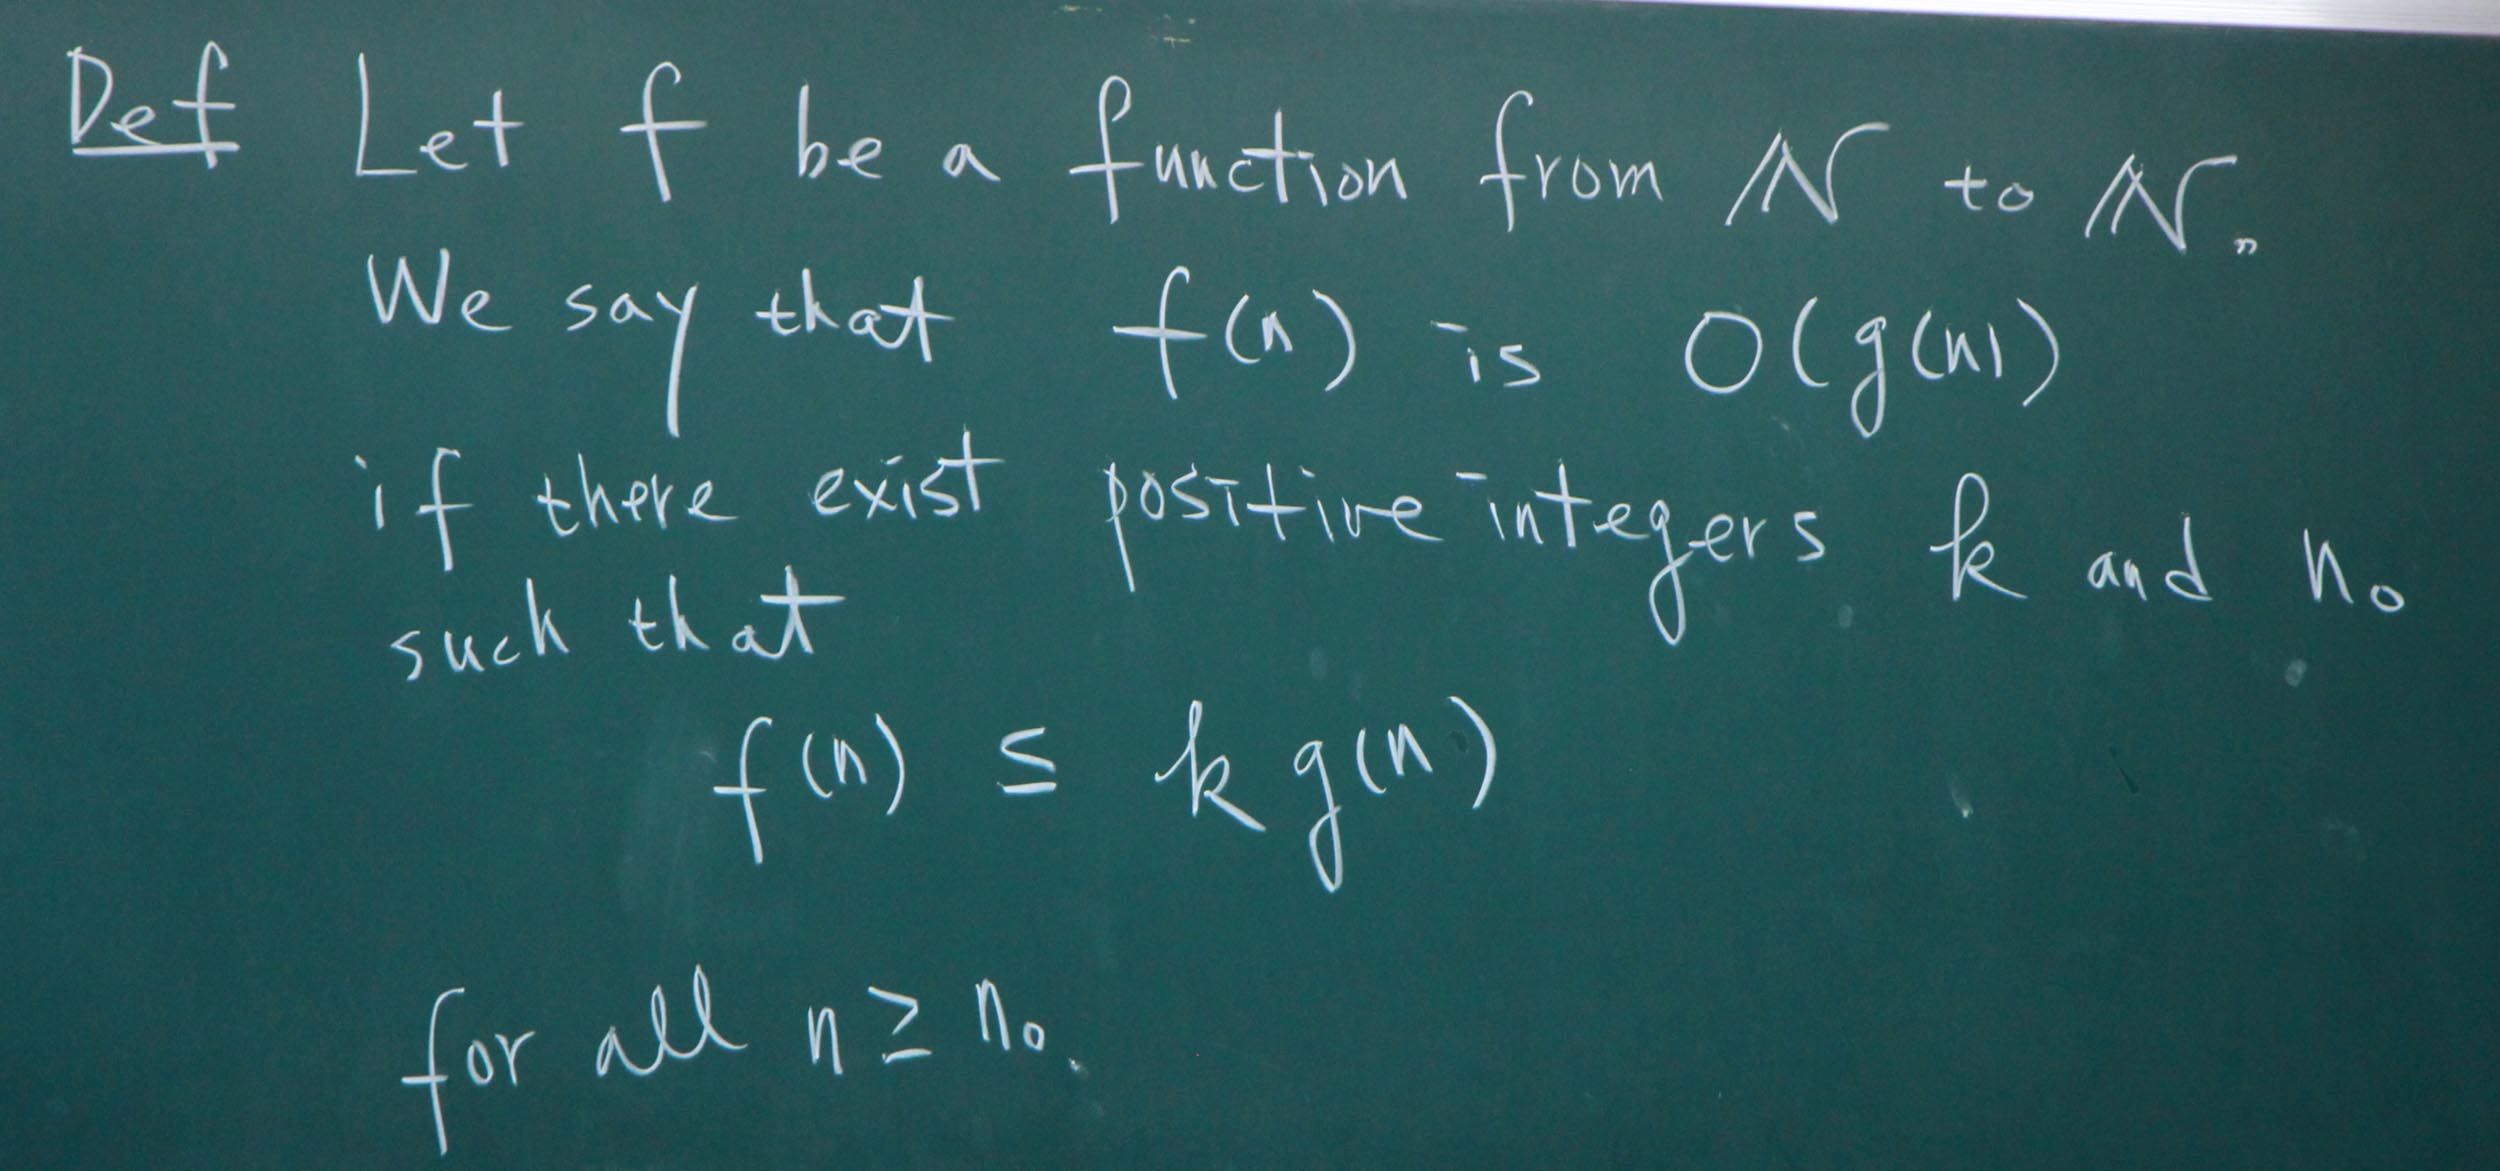 Def Let f be a function from ℕ to ℕ.
We say that f(n) is O(g(n))
if there exist positive integers k and n₀
such that
f(n) ≤ k g(n)
for all n ≥ n₀.